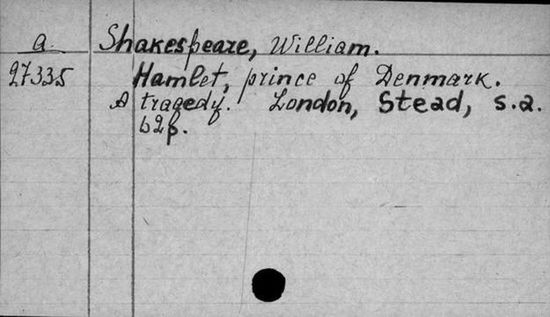 a. Shakespeare, William.
27335 Hamlet, prince of Denmark.
A tragedy. London, Stead, s.a.
62p.